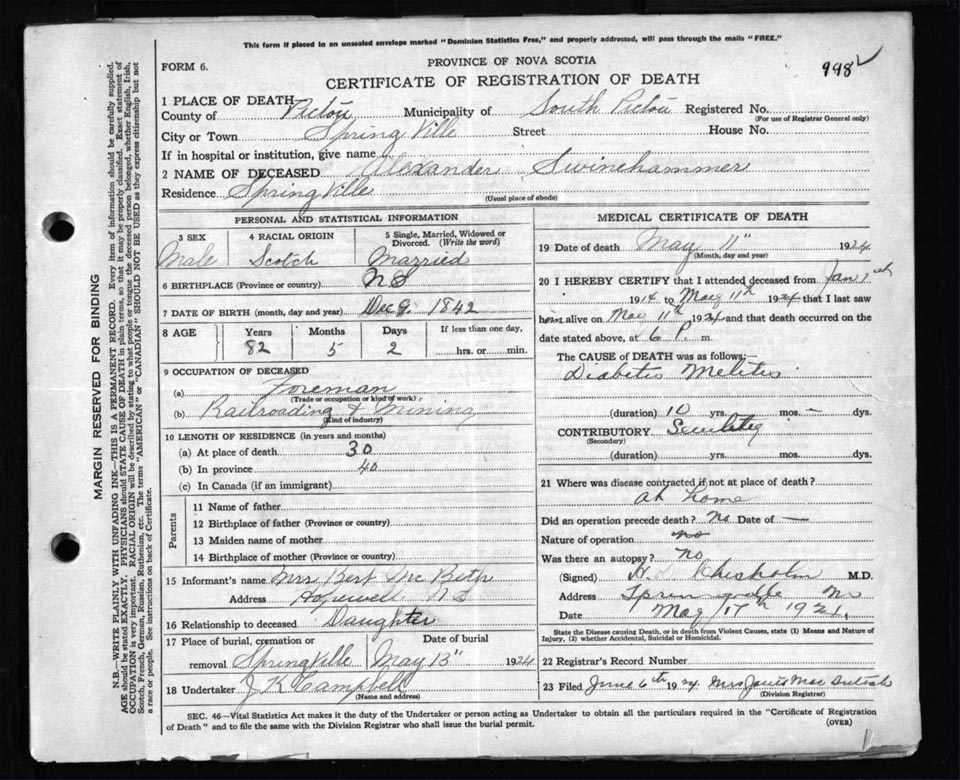 This form if placed in an unsealed envelope marked "Dominion Statistics Free," and properly addressed, will pass through the mails "FREE."
998
FORM 6.
PROVINCE OF NOVA SCOTIA
CERTIFICATE OF REGISTRATION OF DEATH
1 PLACE OF DEATH
County of Pictou Municipality of South Pictou Registered No.
(For use of Registrar General only)
City or Town Spring Ville Street House No.
If in hospital or institution, give name
2 NAME OF DECEASED Alexander Swinehammer
Residence Spring Ville
(Usual place of abode)
PERSONAL AND STATISTICAL INFORMATION
3 SEX 4 RACIAL ORIGIN 5 Single, Married, Widowed or Divorced. (Write the word)
Male Scotch Married
6 BIRTHPLACE (Province or country) N S
7 DATE OF BIRTH (month, day and year) Dec 9. 1842
8 AGE Years Months Days If less than one day,
82 5 2 hrs. or min.
9 OCCUPATION OF DECEASED
(a) Foreman
(Trade or occupation or kind of work)
(b) Railroading & Mining
(Kind of industry)
10 LENGTH OF RESIDENCE (in years and months)
(a) At place of death 30
(b) In province 40
(c) In Canada (if an immigrant)
Parents
11 Name of father
12 Birthplace of father (Province or country)
13 Maiden name of mother
14 Birthplace of mother (Province or country)
15 Informant's name Mrs Bert McBeth
Address Hopewell N S
16 Relationship to deceased Daughter
17 Place of burial, cremation or Date of burial
removal Spring Ville May 13" 1924
18 Undertaker J. K Campbell
(Name and address)
MEDICAL CERTIFICATE OF DEATH
19 Date of death May 11" 1924
(Month, day and year)
20 I HEREBY CERTIFY that I attended deceased from Jan
1914 to May 11th 1924 that I last saw
him alive on May 11th 1924 and that death occurred on the
date stated above, at 6 P. m.
The CAUSE of DEATH was as follows:—
Diabetis Melitis
(duration) 10 yrs. mos. — dys.
CONTRIBUTORY
(Secondary)
(duration) yrs. mos. dys.
21 Where was disease contracted if not at place of death?
at home
Did an operation precede death? no Date of —
Nature of operation no
Was there an autopsy? no
(Signed) Chisholm M.D.
Address
Date May 17th 1921
State the Disease causing Death, or in death from Violent Causes, state (1) Means and Nature of
Injury, (2) whether Accidental, Suicidal or Homicidal.
22 Registrar's Record Number
23 Filed June 6th 1924 Mrs
(Division Registrar)
SEC. 46—Vital Statistics Act makes it the duty of the Undertaker or person acting as Undertaker to obtain all the particulars required in the "Certificate of Registration
of Death" and to file the same with the Division Registrar who shall issue the burial permit. (OVER)
MARGIN RESERVED FOR BINDING
N.B.—WRITE PLAINLY WITH UNFADING INK—THIS IS A PERMANENT RECORD. Every item of information should be carefully supplied.
AGE should be stated EXACTLY. PHYSICIANS should STATE CAUSE OF DEATH in plain terms, so that it may be properly classified. Exact statement of
OCCUPATION is very important. RACIAL ORIGIN will be described by stating to what people or tongue the deceased person belonged, whether English, Irish,
Scotch, French, German, Russian, Ruthenian, etc. The terms "AMERICAN" or "CANADIAN" SHOULD NOT BE USED as they express citizenship but not
a race or people. See instructions on back of Certificate.